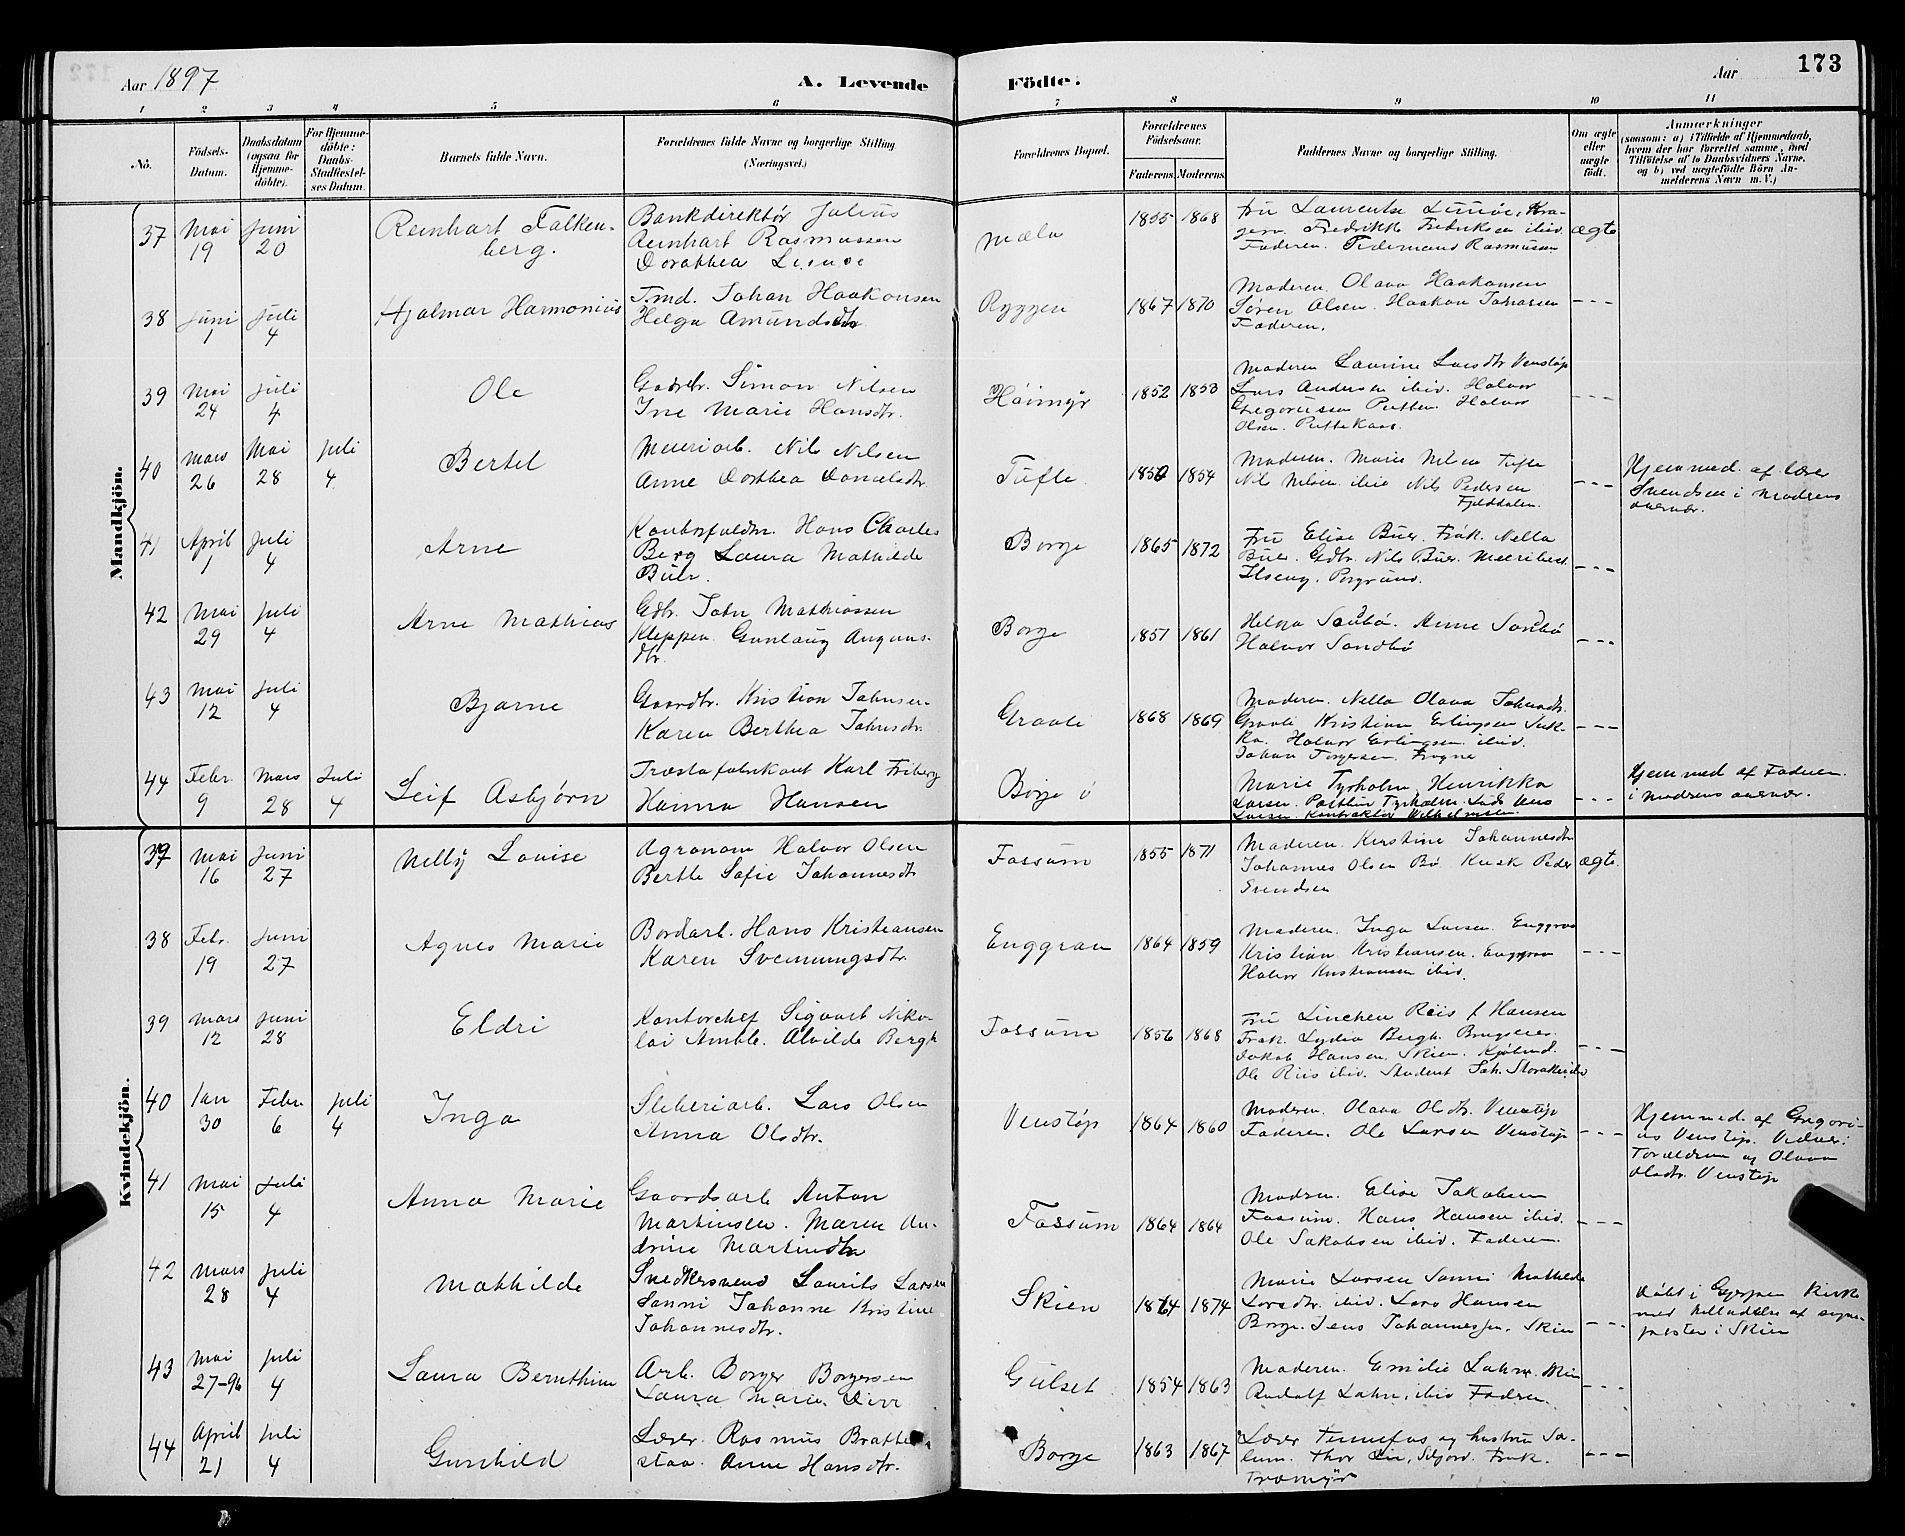 Aar 1897
A. Levende
Födte.
Aar
173
1 2 3 4 5 6 7 8 9 10 11
No.
Födsels-Datum.
Daabsdatum (ogsaa for Hjemme-döbte).
For Hjemme-döbte: Daabs-Stadfæstel-ses Datum.
Barnets fulde Navn.
Forældrenes fulde Navne og borgerlige Stilling (Næringsvei.)
Forældrenes Bopæl.
Forældrenes Födselsaar.
Faderens. Moderens.
Faddernes Navne og borgerlige Stilling.
Om ægte eller uægte födt.
Anmærkninger
(saasom: a) i Tilfælde af Hjemmedaab,
hvem der har forrettet samme, med
Tilföielse af to Daabsvidners Navne,
og b) ved uægtefödte Börn An-
melderens Navn m. V.)
Mandkjön.
37 Mai 19 Juni 20 Reinhart Falken-
berg.
Bankdirektör Julius
Reinhart Rasmussen
Dorothea
Mæla 1855 1868
Fru Laurentse Kra-
gerø. Fredrikke Fredriksen ibid.
Faderen. Fredemand Rasmusen
ægte
38 Juni 1 Juli 4 Hjalmar Harmonius
Tmd. Johan Haakonsen
Helga Amundsdtr.
Ryggen 1867 1870
Moderen. Olava Haakonsen
Søren Olsen. Haakon Johansen
Faderen.
---
39 Mai 24 Juli 4 Ole
Gaardbr. Simon Nilsen
Ine Marie Hansdtr.
Høimyr 1852 1853
Moderen Laurine Larsdtr Venstøp
Lars Andersen ibid. Halvor
Gregoriussen Putten. Halvor
Olsen. Puttekaas.
---
40 Mars 26 Mai 28 Juli 4 Bertel
Meieriarb. Nils Nilsen
Anne Dorthea Danielsdtr.
Tufte. 1850 1854
Moderen. Marie Nilsen Tufte
Nils Nilsen ibid Nils Pedersen
Fjelddalen.
---
Hjemmed. af lærer
Svendsen i Moderens
nærvær.
41 April 1 Juli 4 Arne
Kontorfuldm. Hans Charles
Berg Laura Mathilde
Buer.
Borge 1865 1872
Fru Elise Buer. Frøk. Nella
Buer. Gdbr. Nils Buer. Meieribest.
Ilseng. Porsgrund.
---
42 Mai 29 Juli 4 Arne Mathias
Gdbr. John Mathiassen
Kleppen Gunlaug
dtr.
Borge 1851 1861
Helga Sandbø. Anne Sandbø
Halvor Sandbø
---
43 Mai 12 Juli 4 Bjarne
Gaardbr. Kristian Johnsen
Karen Berthea Johnsdtr.
Graali 1868 1869
Moderen. Nella Olava Johnsdtr.
Graali Kristian Erlingsen
Halvor Erlingsen ibid.
Johan Torgersen. Frogne
---
44 Febr. 9 Mars 28 Juli 4 Leif Asbjørn
Træstofabrikant Karl Friberg
Hanna Hansen
Borge ø
Marie Tyrholm, Henrikka
Larsen. Tyrholm.
Larsen. Kontraktør Wilhelmsen.
---
Hjemmed af Faderen.
i Moderens nærvær.
Kvindekjön.
37 Mai 16 Juni 27 Nelly Louise
Agronom Halvor Olsen
Berthe Sofie Johannesdtr
Fossum 1855 1871
Moderen. Kirstine Johannesdtr
Johannes Olsen Bø Kusk Peder
Svendsen
ægte.
38 Febr. 19 Juni 27 Agnes Marie
Bordarb. Hans Kristiansen
Karen Svenningsdtr.
Enggrav 1864 1859
Moderen. Inga Larsen. Enggrav
Kristian Kristiansen. Enggrav
Halvor Kristiansen ibid.
---
39 Mars 12 Juni 28 Eldri
Kontorchef Sigvart Niko-
lai Amble. Alvilde Bergh
Fossum 1856 1868
Fru Linchen Riis f Hansen
Frøk. Lydia Bergh. Brugseier
Jakob Hansen, Skien. Kjøbmd.
Ole Riis ibid. Student Joh.
---
40 Jan 30 Febr. 6 Juli 4 Inga
Sliberiarb. Lars Olsen
Anna Olsdtr.
Venstøp 1864 1860
Moderen. Olava Olsdtr. Venstøp
Faderen. Ole Larsen Venstøp
---
Hjemmed. af Gregori-
us Venstøp. Vidner:
Forældrene og Olava
Olsdtr. Venstøp
41 Mai 15 Juli 4 Anna Marie
Gaardsarb Anton
Martinsen. Maren An-
drine Martinsdtr
Fossum 1864 1864
Modren. Elise Jakobsen
Fossum. Hans Hansen ibid.
Ole Jakobsen ibid. Faderen.
---
42 Mars 28 Juli 4 Mathilde
Snedkersvend Laurits Larsen
Sanni Johanne Kristine
Johannesdtr.
Skien 1874 1874
Marie Larsen Sanni Mathilde
Larsdtr. ibid. Lars Hansen
Borge. Jens Johannessen. Skien
---
Døbt i Gjerpen kirke
med tilladelse af sogne-
presten i Skien
43 Mai 27-96 Juli 4 Laura Bernthine
Arb. Borger Borgersen
Laura Marie
Gulset 1854 1863
Moderen. Emilie Lahn.
Rudolf Lahn, ibid Fadren.
---
44 April 21 Juli 4 Gunhild
Lærer. Rasmus Bratte
staa. Anne Hansdtr.
Borge 1863 1867
Lærer og hustru Sa-
lum. Thor Lie, Frøk.
---